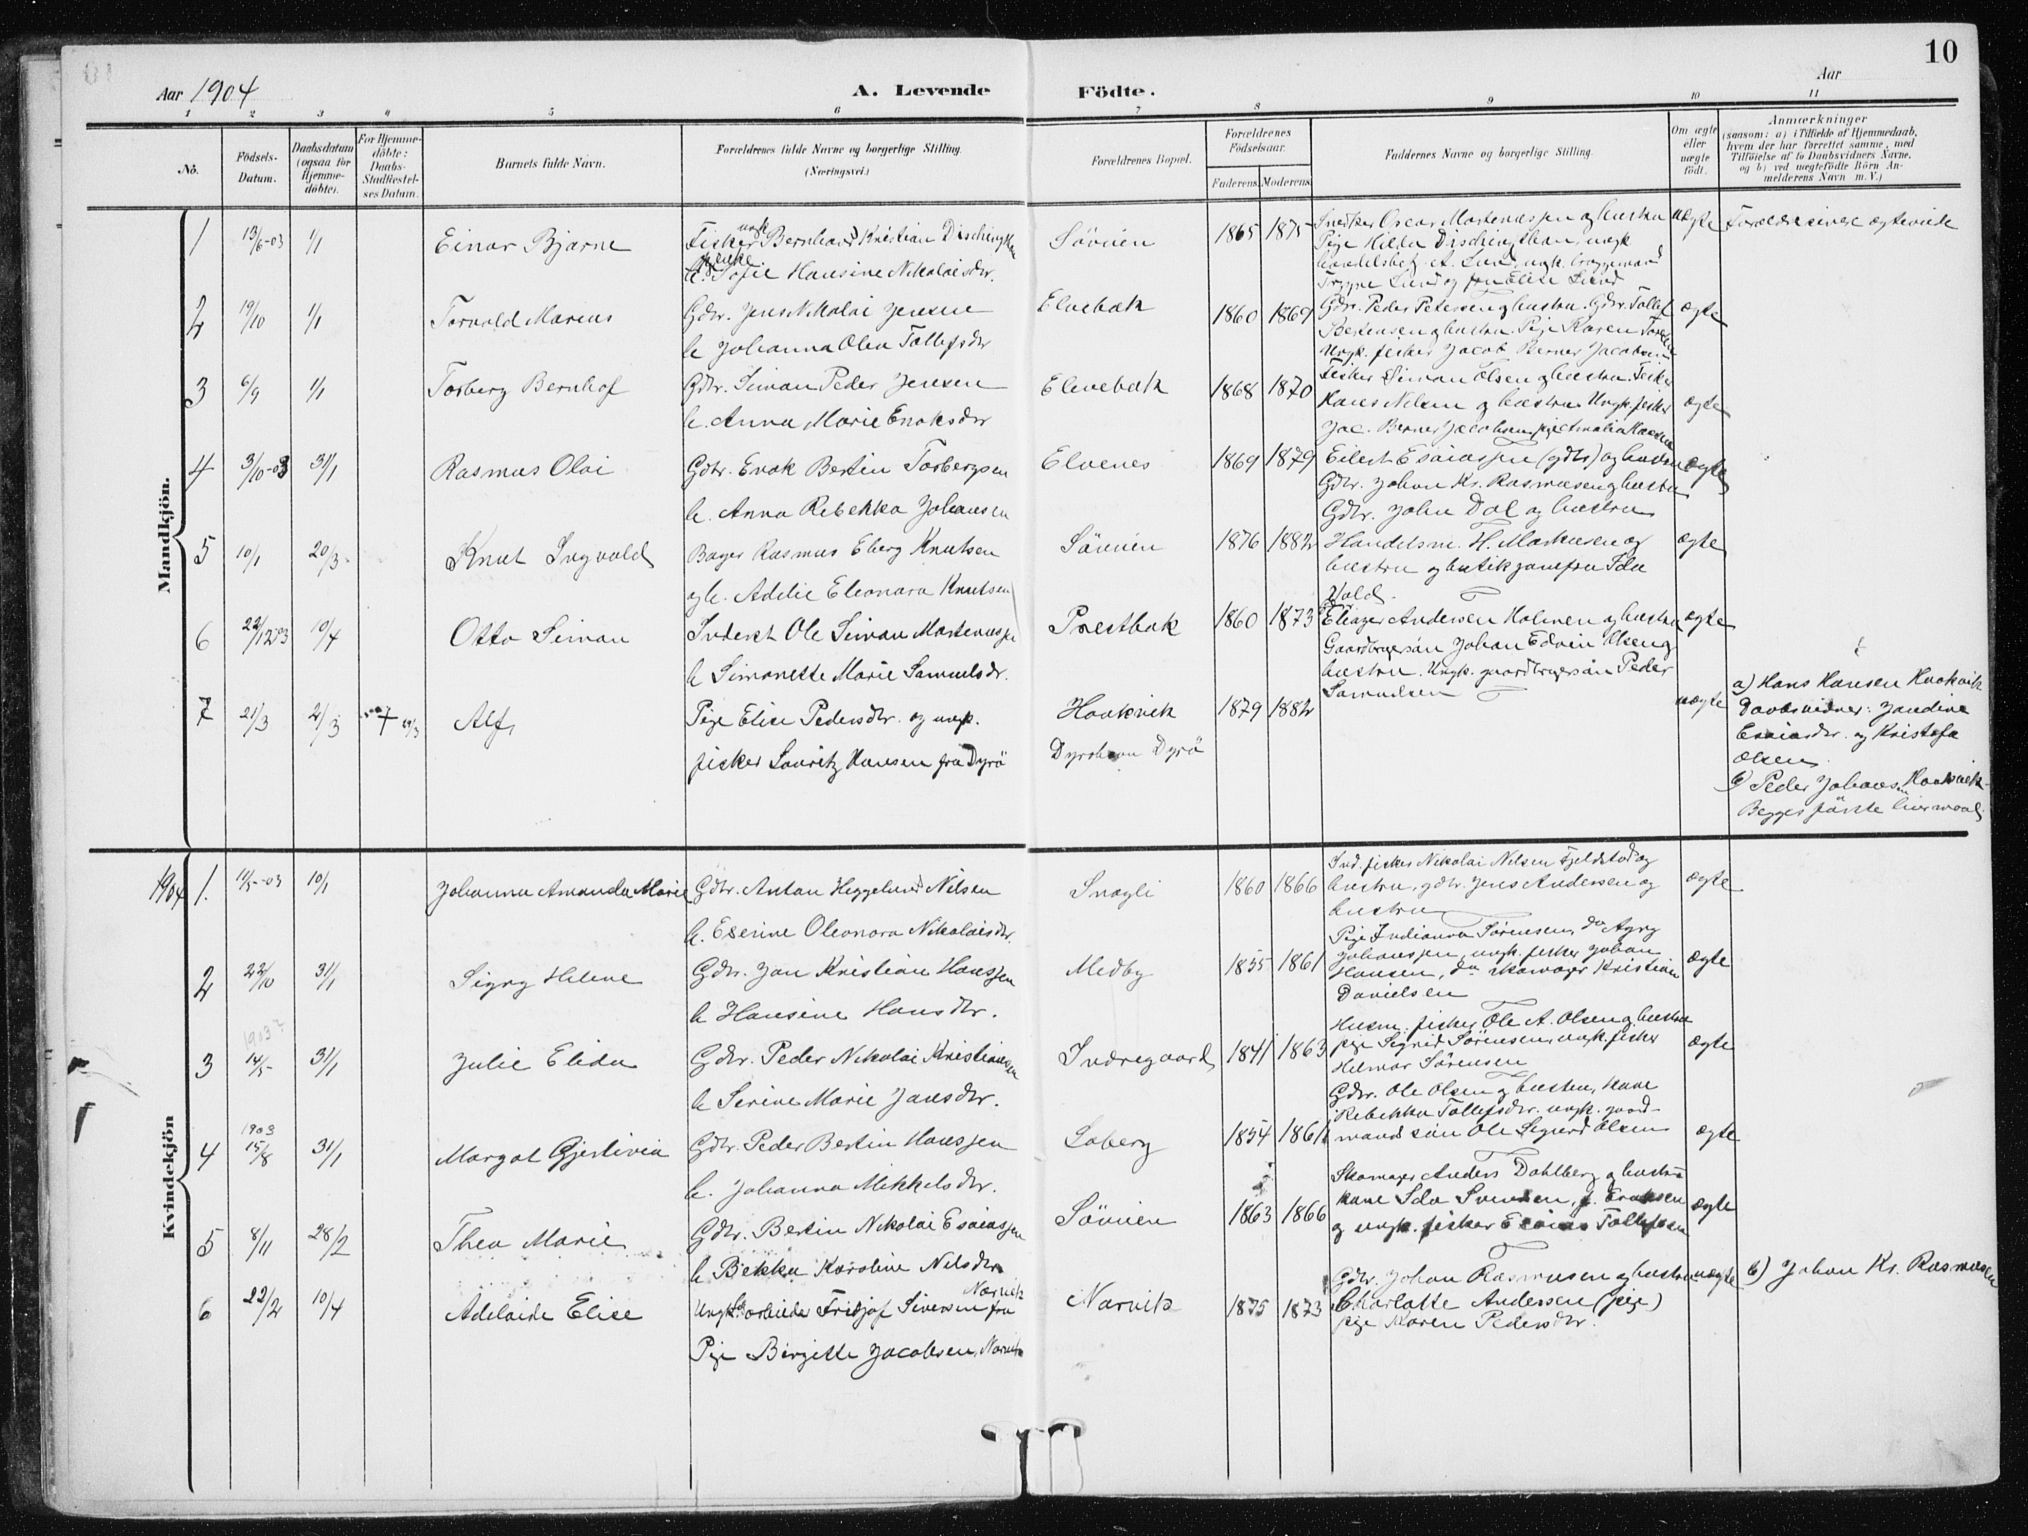 10
Aar 1904
A. Levende Födte.
Aar
1 2 3 4 5 6 7 8 9 10 11
No.
Födsels-Datum.
Daabsdatum (ogsaa for Hjemme-döbte).
For Hjemme-döbte: Daabs-Stadfæstel-ses Datum.
Barnets fulde Navn.
Forældrenes fulde Navne og borgerlige Stilling. (Næringsvei.)
Forældrenes Bopæl.
Forældrenes Födselsaar.
Faderens. Moderens.
Faddernes Navne og borgerlige Stilling.
Om ægte eller uægte födt.
Anmærkninger
(saasom: a) i Tilfælde af Hjemmedaab, hvem der har forrettet samme, med Tilföielse af to Daabsvidners Navne, og b) ved uægtefödte Börn An-melderens Navn m. V.)
Mandkjön.
1 13/6-03 1/1 Einar Bjarne
Fisker ungk Bernhard Kristian
pike Sofie Hansine Nikolaisdtr.
Sövien 1865 1875
Snedker Oscar Mortenssen og hustru
Pige Hilda ungk
handelsbetj. A. Lund, ungk.
Trygve Lund og frk Elise Lund
uægte
2 19/10 1/1 Torvald Marius
Gdbr. Jens Nikolai Jensen
h. Johanna Olea Tollefsdtr
Elvebak 1860 1869
Gdbr. Peder Petersen og hustru. Gdbr. Tollef
Berntsen og hustru. Pige Karen
Ungk. fisker Jacob Berner Jacobsen
ægte
3 6/9 1/1 Torberg Bernhof
Gdbr. Simon Peder Jensen
h. Anna Marie Enoksdtr
Elvebak 1868 1870
Fisker Simon Olsen og hustru. Fisker
Hans Nilsen og hustru. Ungk. fisker
Jac. Berner Jacobsen, pige Hansen
ægte
4 3/10-03 31/1 Rasmus Olai
Gdbr. Enok Bertin Torbergsen
h. Anna Rebekka Johansen
Elvenes 1869 1879
Eilert Esaiassen (gdbr) og hustru
Gdbr. Johan Kr. Rasmusen og hustru
Gdbr. John Dal og hustru
ægte
5 10/1 20/3 Knut Ingvald
Bager Rasmus Eberg Knutsen
og h. Adelie Eleonora Knutsen
Sövien 1876 1882
Handelsm. H. Markusen og
hustru og butikjomfru Ida
Vold.
ægte
6 22/12 03 10/4 Otto Simon
Inderst Ole Simon Mortenssen
h Simonette Marie Samuelsdr.
Prestbak 1860 1873
Eliazer Andersen Holmen og hustru
Gaardbrugersön Johan Edvin Olsen og
hustru. Ungk. gaardbrugersön Peder
Samuelsen
ægte
7 21/3 2/3 Alf
Pige Elise Pedersdtr. og ungk.
fisker Lauritz Hansen fra Dyrö
Haakvik
Dyröhavn Dyrö
1879 1882
uægte
a) Hans Hansen Haakvik
Daabsvidner: Jandine
Esaiasdtr. og Kristofa
Olsen.
b) Peder Johansen Haakvik
Begges förste leiermaal
1904
Kvindekjön
1. 11/5-03 10/1 Johanna Amanda Marie
Gdbr. Anton Heggelund Nilsen
h. Eserine Oleonora Nikolaisdtr.
Snogli 1860 1866
Ind. fisker Nikolai Nilsen Fjeldstad og
hustru, gdbr. Jens Andersen og
hustru
ægte
2 22/10 31/1 Signy Helene
Gdbr. Jan Kristian Hanssen
h Hansine Hansdtr.
Medby 1855 1861
Pige Indianna Sörensen, do
Johanssen, ungk. fisker Johan
Hansen, do skomager Kristian
Danielsen
ægte
1903?
3 14/5 31/1 Julie Elida
Gdbr. Peder Nikolai Kristiansen
h Serine Marie Jansdtr.
Indregaard 1841 1863
Husm. fisker Ole A. Olsen og hustru
pige Sigrid Sörensen, ungk. fisker
Hilmar Sörensen
ægte
1903
4 15/8 31/1 Margot Gjertivia
Gdbr. Peder Bertin Hanssen
h. Johanna Mikkelsdtr.
Soberg 1854 1861
Gdbr. Ole Olsen og hustru, kone
Rebekka Tollefsdtr. ungk. gaard-
mandssön Ole Sigurd Olsen
ægte
5 8/11 28/2 Thea Marie
Gdbr. Bertin Nikolai Esaiassen
h Bekka Karoline Nilsdtr
Sövien 1863 1866
Skomager Anders Dahlberg og hustru
kone Ida Svendsen, f. Enoksen
og ungk. fisker Esaias Tollefsen
ægte
6 22/2 10/4 Adelaide Elise
Ungk. arbeider Fridjof Siversen fra Narvik
Pige Birgitte Jacobsen, Narvik
Narvik 1875 1873
Gdbr. Johan Rasmusen og hustru
Charlotte Andersen (pige)
pige Karen Pedersdtr.
uægte
b) Johan Kr. Rasmusen